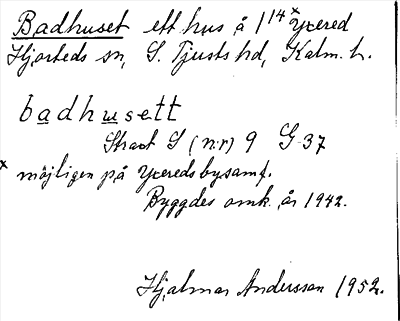 Badhuset ett hus å 1 14 x Yxered
Hjorteds sn, S. Tjusts hd, Kalm. l.
badhusett
Strax S (n:r) 9 G-37
x möjligen på Yxereds bysamf.
Byggdes omk. år 1942.
Hjalmar Andersson 1952.